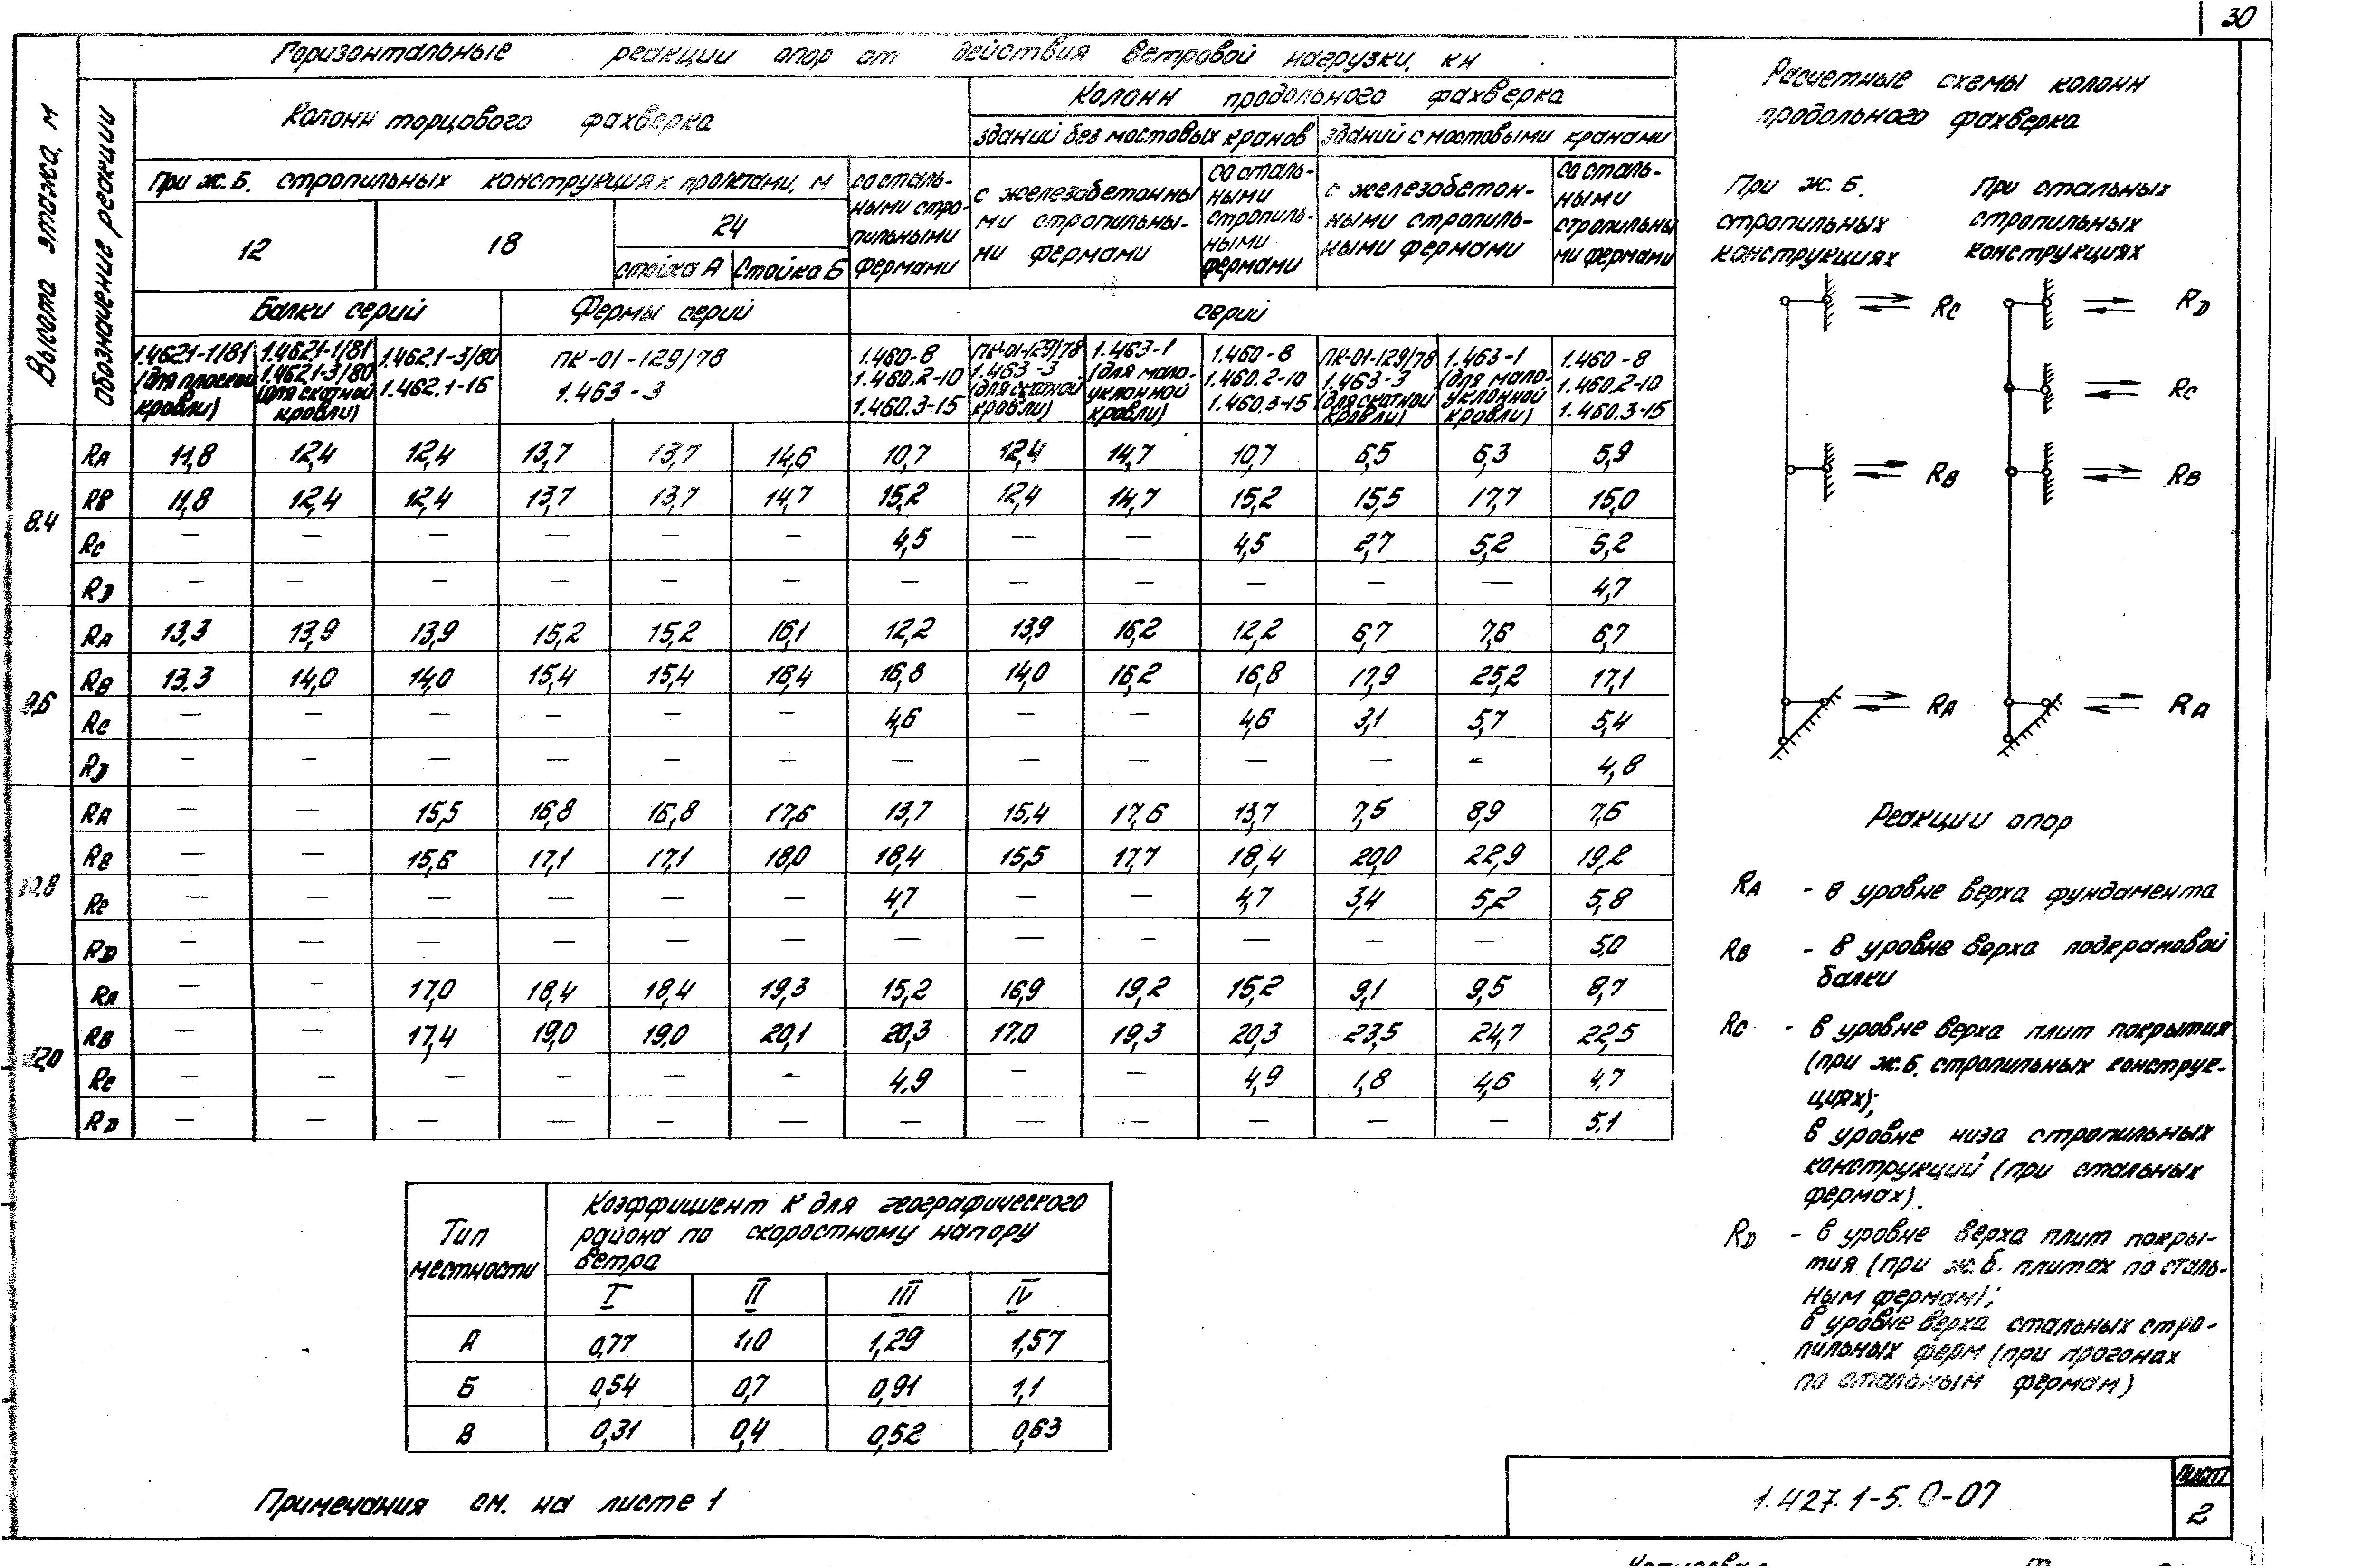 30
Горизонтальные реакции опор от действия ветровой нагрузки, кн
Высота этажа, м
Обозначение реакции
Колонн торцового фахверка
Колонн продольного фахверка
зданий без мостовых кранов
зданий с мостовыми кранами
При ж.б. стропильных конструкциях пролетами, м
со сталь-
ными стро-
пильными
фермами
с железобетонны
ми стропильны-
ми фермами
со сталь-
ными
стропиль-
ными
фермами
с железобетон-
ными стропиль-
ными фермами
со сталь-
ными
стропильны
ми фермами
12
18
24
стойка А
Стойка Б
Балки серий
Фермы серий
серий
1.462.1-1/81
(для плоской
кровли)
1.462.1-1/81
1.462.1-3/80
(для скатной
кровли)
1.462.1-3/80
1.462.1-16
ПК-01-129/78
1.463-3
1.460-8
1.460.2-10
1.460.3-15
ПК-01-129/78
1.463-3
(для скатной
кровли)
1.463-1
(для мало-
уклонной
кровли)
1.460-8
1.460.2-10
1.460.3-15
ПК-01-129/78
1.463-3
(для скатной
кровли)
1.463-1
(для мало-
уклонной
кровли)
1.460-8
1.460.2-10
1.460.3-15
8.4
RA 11,8 12,4 12,4 13,7 13,7 14,6 10,7 12,4 14,7 10,7 6,5 6,3 5,9
RB 11,8 12,4 12,4 13,7 13,7 14,7 15,2 12,4 14,7 15,2 15,5 17,7 15,0
RC — — — — — — 4,5 — — 4,5 2,7 5,2 5,2
RD — — — — — — — — — — — — 4,7
9,6
RA 13,3 13,9 13,9 15,2 15,2 16,1 12,2 13,9 16,2 12,2 6,7 7,6 6,7
RB 13.3 14,0 14,0 15,4 15,4 16,4 16,8 14,0 16,2 16,8 17,9 25,2 17,1
RC — — — — — — 4,6 — — 4,6 3,1 5,7 5,4
RD — — — — — — — — — — — — 4,8
10,8
RA — — 15,5 16,8 16,8 17,6 13,7 15,4 17,6 13,7 7,5 8,9 7,6
RB — — 15,6 17,1 17,1 18,0 18,4 15,5 17,7 18,4 20,0 22,9 19,2
RC — — — — — — 4,7 — — 4,7 3,4 5,2 5,8
RD — — — — — — — — — — — — 5,0
12,0
RA — — 17,0 18,4 18,4 19,3 15,2 16,9 19,2 15,2 9,1 9,5 8,7
RB — — 17,4 19,0 19,0 20,1 20,3 17.0 19,3 20,3 23,5 24,7 22,5
RC — — — — — — 4.9 — — 4,9 1,8 4,6 4.7
RD — — — — — — — — — — — — 5.1
Расчетные схемы колонн
продольного фахверка
При ж.б.
стропильных
конструкциях
При стальных
стропильных
конструкциях
RC
RB
RA
RD
RC
RB
RA
Реакции опор
RA - в уровне верха фундамента
RB - в уровне верха подкрановой
балки
RC - в уровне верха плит покрытия
(при ж.б. стропильных конструк-
циях);
в уровне низа стропильных
конструкций (при стальных
фермах).
RD - в уровне верха плит покры-
тия (при ж.б. плитах по сталь-
ным фермам);
в уровне верха стальных стро-
пильных ферм (при прогонах
по стальным фермам)
Тип
местности
Коэффициент К для географического
района по скоростному напору
ветра
I II III IV
А 0,77 1,0 1,29 1,57
Б 0,54 0,7 0,91 1,1
В 0,31 0,4 0,52 0,63
Примечания см. на листе 1
1.427.1-5.0-07
Лист
2